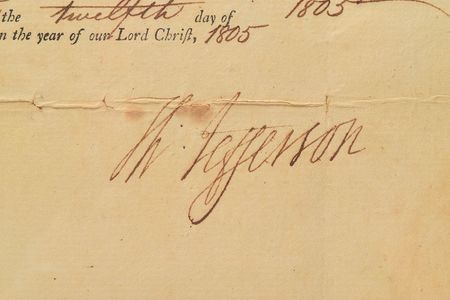 the twelfth day of 1805
in the year of our Lord Chriſt, 1805
Th: Jefferson